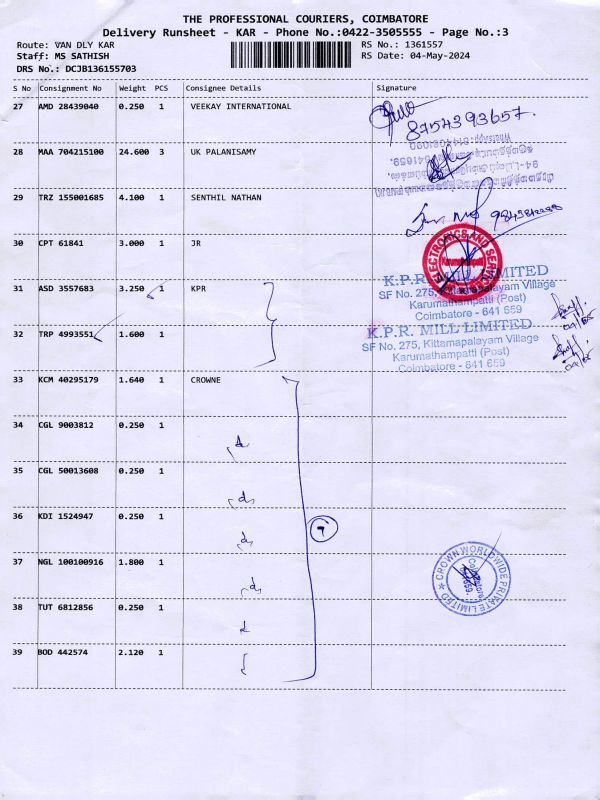 THE PROFESSIONAL COURIERS, COIMBATORE
Delivery Runsheet - KAR - Phone No.:0422-3505555 - Page No.:3
Route: VAN DLY KAR
RS No.: 1361557
Staff: MS SATHISH
RS Date: 04-May-2024
DRS No.: DCJB136155703
S No Consignment No Weight PCS Consignee Details Signature
27 AMD 28439040 0.250 1 VEEKAY INTERNATIONAL
8754393657.
28 MAA 704215100 24.600 3 UK PALANISAMY
29 TRZ 155001685 4.100 1 SENTHIL NATHAN
30 CPT 61841 3.000 1 JR
ELECTRONICS AND SERVICE
31 ASD 3557683 3.250 1 KPR
K.P.R. MILL LIMITED
SF No. 275, Kittamapalayam Village
Karumathampatti (Post)
Coimbatore - 641 659
32 TRP 4993551 1.600 1
K.P.R. MILL LIMITED
SF No. 275, Kittamapalayam Village
Karumathampatti (Post)
Coimbatore - 641 659
33 KCM 40295179 1.640 1 CROWNE
34 CGL 9003812 0.250 1
35 CGL 50013608 0.250 1
36 KDI 1524947 0.250 1
7
37 NGL 100100916 1.800 1
CROWN WORLDWIDE PRIVATE LIMITED
38 TUT 6812856 0.250 1
39 BOD 442574 2.120 1